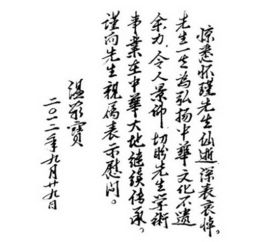 惊悉怀瑾先生仙逝深表哀悼。
先生一生为弘扬中华文化不遗
余力，令人景仰，切盼先生学术
事业在中华大地继续传承。
谨向先生亲属表示慰问。
温家宝
二〇一二年九月廿九日